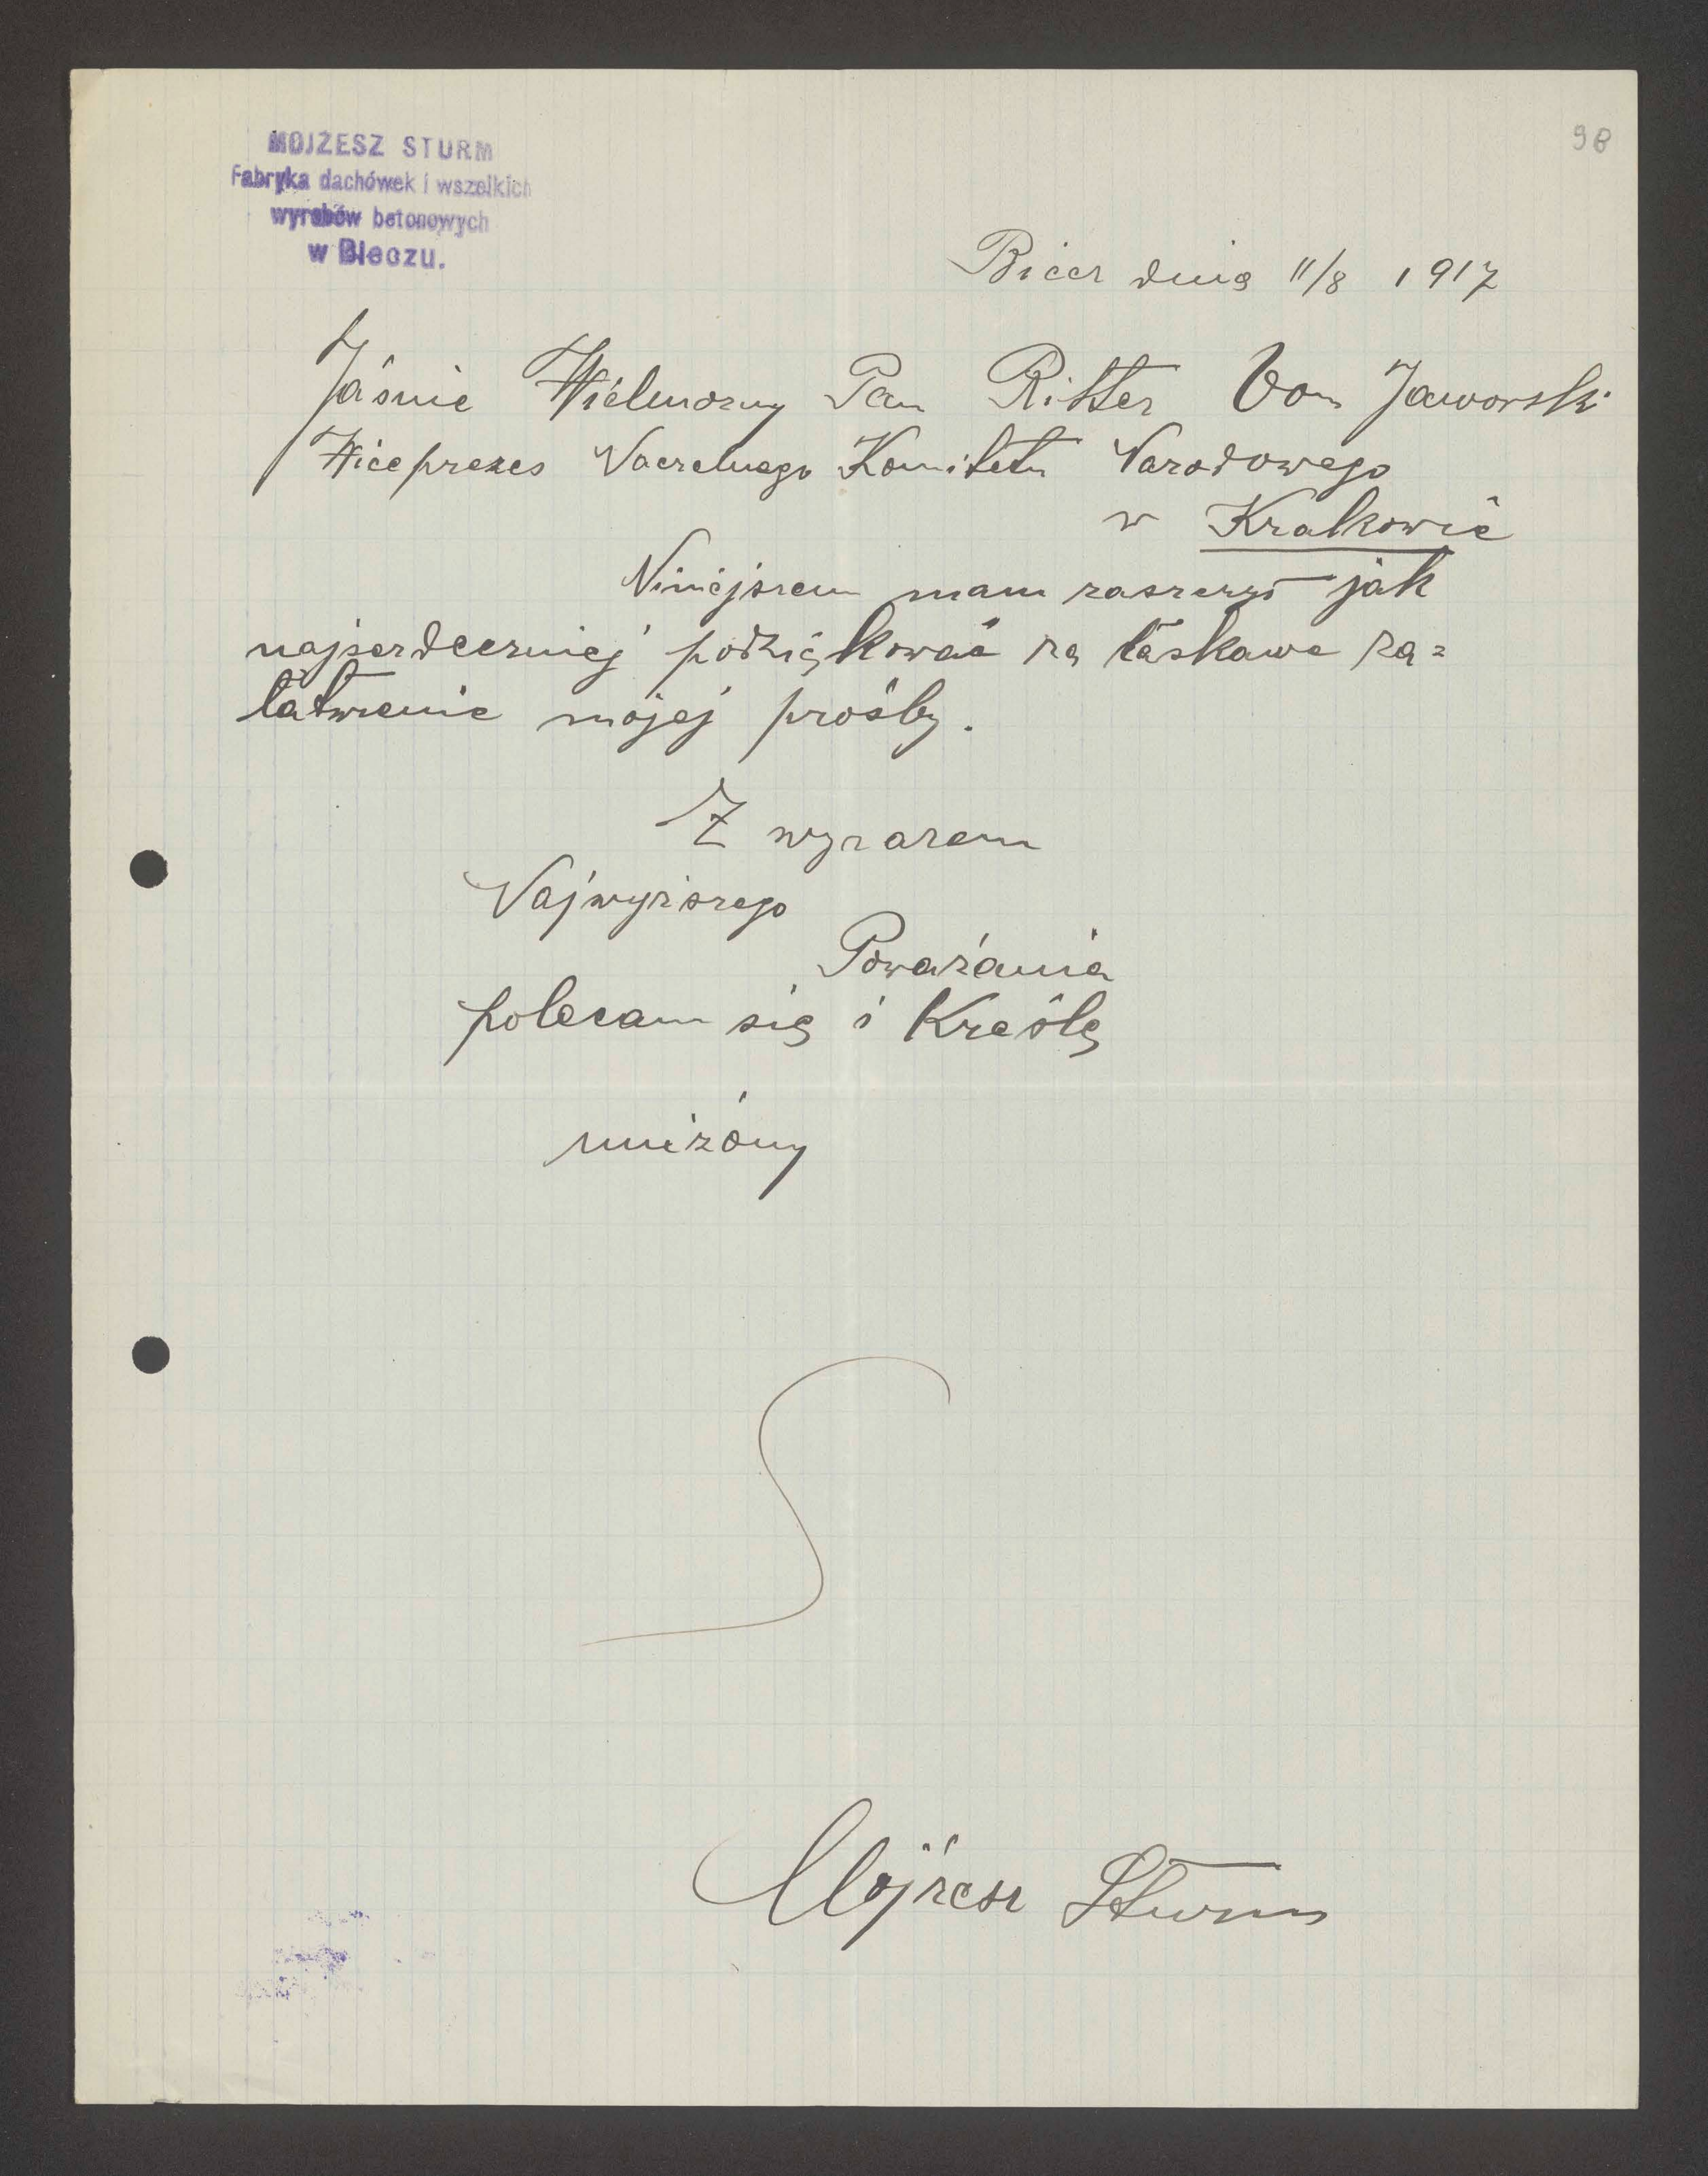 98
MOJŻESZ STURM
Fabryka dachówek i wszelkich
wyrobów betonowych
w Bieczu.
Biecz dnia 11/8 1917
Jaśnie Wielmożny Pan Ritter Von Jaworski
Wiceprezes Naczelnego Komitetu Narodowego
w Krakowie
Niniejszem mam zaszczyt jak
najserdeczniej podziękować za łaskawe za=
łatwienie mojej prośby.
Z wyrazem
Najwyższego
Poważania
polecam się i Kreślę
uniżony
Mojżesz Sturm